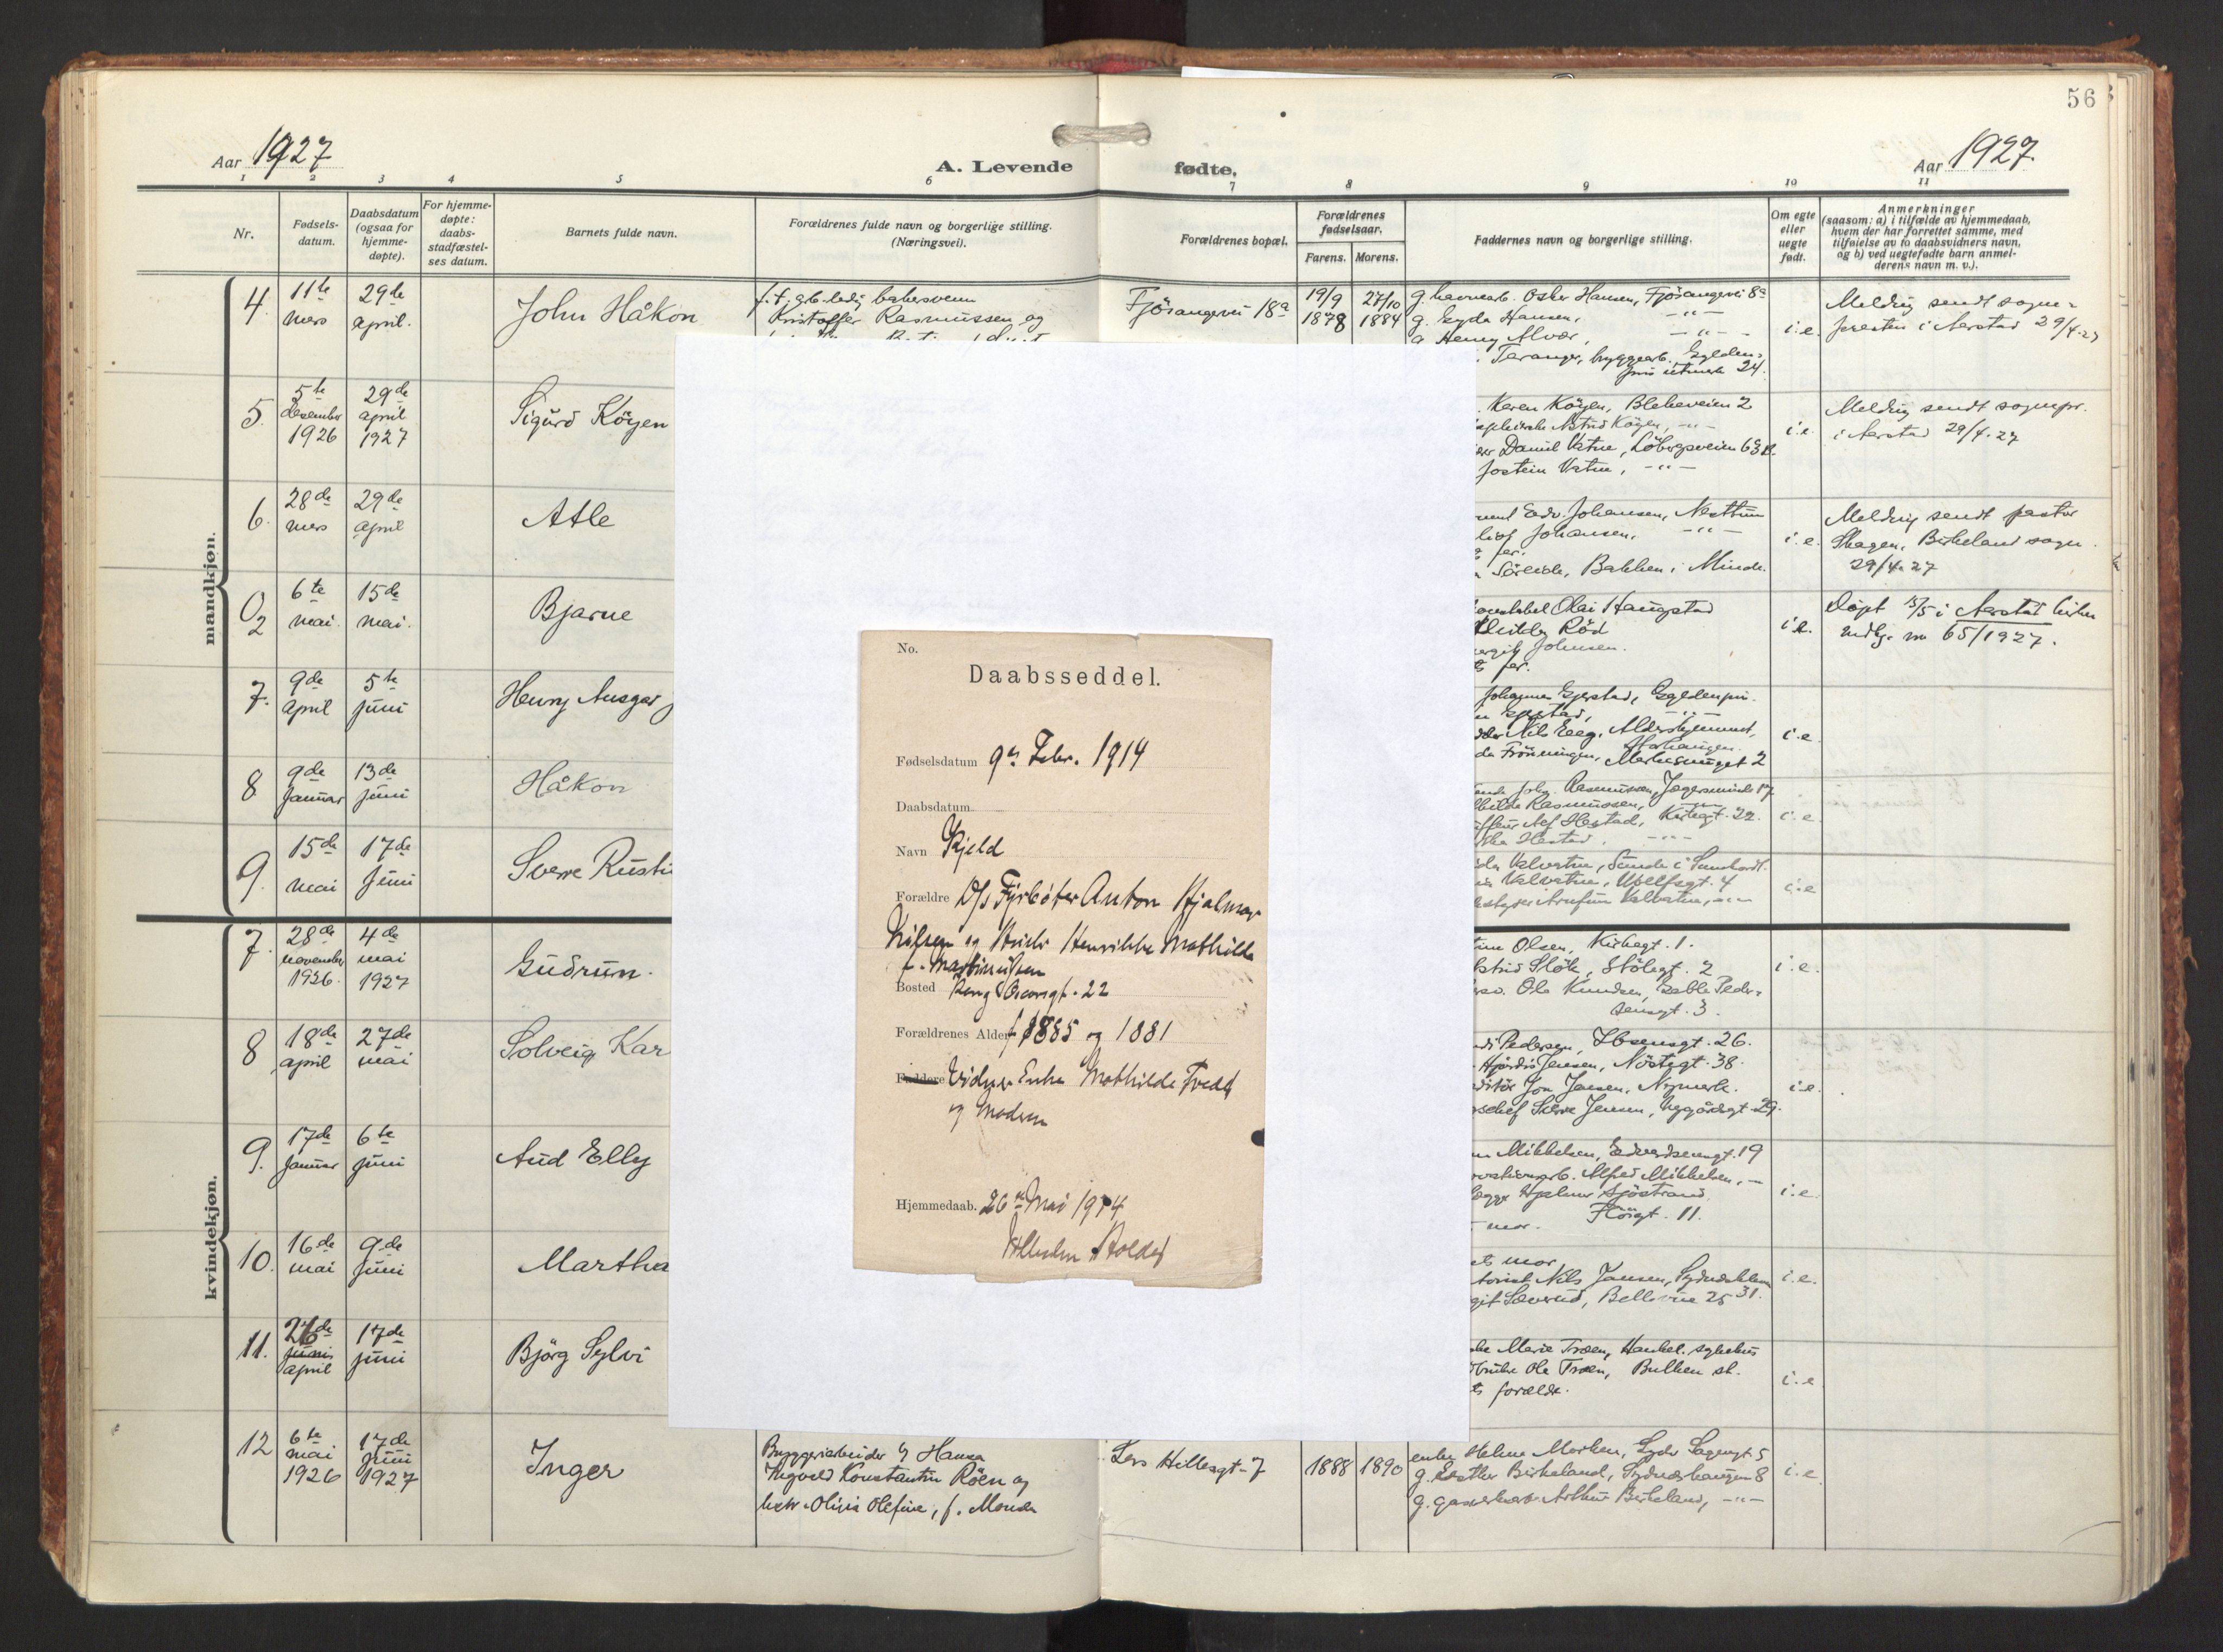 56
Aar 1927
A. Levende fødte.
Aar 1927.
1 2 3 4 5 6 7 8 9 10 11
Nr.
Fødsels-
datum.
Daabsdatum
(ogsaa for
hjemme-
døpte).
For hjemme-
døpte:
daabs-
stadfæstel-
ses datum.
Barnets fulde navn.
Forældrenes fulde navn og borgerlige stilling.
(Næringsvei).
Forældrenes bopæl.
Forældrenes
fødselsaar.
Farens. Morens.
Faddernes navn og borgerlige stilling.
Om egte
eller
uegte
født.
Anmerkninger
(saasom: a) i tilfælde av hjemmedaab,
hvem der har forrettet samme, med
tilføielse av to daabsvidners navn,
og b) ved uegtefødte barn anmel-
derens navn m. v.).
mandkjøn.
4. 11te mars 29de april. John Håkon
Kristoffer Rasmussen og
Fjösangervei 18a
19/9 1878 27/10 1884
g. havnearb. Oskar Hansen, Fjösangervei 8a
g. Gyda Hansen, -"-
g. Henny Alvær, -"-
Teranger, byggearb. Gylden-
24.
i.e.
Melding sendt sogne-
presten i Aarstad 29/4-27
5. 5te desember 1926 29de april 1927 Sigurd Köyen
Karen Köyen, Blekeveien 2
Astrid Köyen, -"-
Daniel Vatne, Löbergsveien 63 B.
Jostein Vatne, -"-
i.e.
Melding sendt sognepr.
i Aarstad 29/4-27
6. 28de mars 29de april Atle
Edv. Johansen, Nesttun
Johansen, -"-
far.
Söreide, Bakken i Minde.
i.e.
Melding sendt pastor
Skagen, Birkeland sogn.
29/4-27
0 2 6te mai. 15de mai. Bjarne
Olai Haugstad
Röd
Johnsen.
far.
i.e.
Döpt 15/5 i Aarstad kirke
no 65/1927.
7. 9de april 5te juni Henry Ansgar
Johannes Gjerstad, Gyldenpris.
Gjerstad, -"-
Nils Eeg,
Frönningen, 2
i.e.
8 9de januar 13de juni Håkon
Rasmussen, 17
Rasmussen, -"-
Hestad, Kirkegt. 22.
Hestad. -"-
i.e.
9. 15de mai 17de juni Sverre
Valvatne, Sunde i Sundhordl.
Valvatne, 4
Valvatne, -"-
i.e
kvindekjøn.
7. 28de november 1926. 4de mai 1927 Gudrun.
Olsen, Kirkegt. 1.
Slök, Stölegt. 2
Ole Knudsen, Gabble Peder-
sensgt. 3.
i.e.
8 18de april 27de mai Solveig Kar
Pedersen, Ibsensgt. 26.
Hjördis Jensen, Nöstegt. 38.
Jon Jansen, Nymark.
Sverre Jensen, Nygårdsgt. 29.
i.e.
9. 17de januar 6te juni Aud Elly
Mikkelsen, Edvardsensgt. 19
Alfred Mikkelsen, -"-
Hjalmar Sjöstrand,
mor. Flöigt. 11.
i.e.
10. 16de mai 9de juni Martha
mor,
Nils Jansen, 31.
Bellevue 25
i.e.
11. 26de juni april 17de juni Björg Sylvi
Marie Troen, Haukel. sykehus
Ole Troen, Bulken st.
forældre.
i.e
12 6te mai 1926 17de juni 1927 Inger
Bryggeriarbeider v/ Hansa
Ingvald Konstantin Röen og
hustr. Olivia Olefine, f. Monsen
Lars Hillesgt. 7
1888 1890
enke Helene Marken, Lyder Sagensgt. 5
g. Esther Birkeland, Sydneshaugen 8
g. gassverksarb. Arthur Birkeland, -"-
i.e.
No.
Daabsseddel.
Fødselsdatum 9de Febr. 1914
Daabsdatum
Navn Kjeld
Forældre D/s Fyrbøter Anton Hjalmar
Nilsen og Hustr. Henrikke Mathilde
f. Martinussen
Bosted Kong Oscarsgt. 22
Forældrenes Alder f 1885 og 1881
Faddere Vidner Enke Mathilde Tvedt
og Moderen
Hjemmedaab. 26de Mai 1914